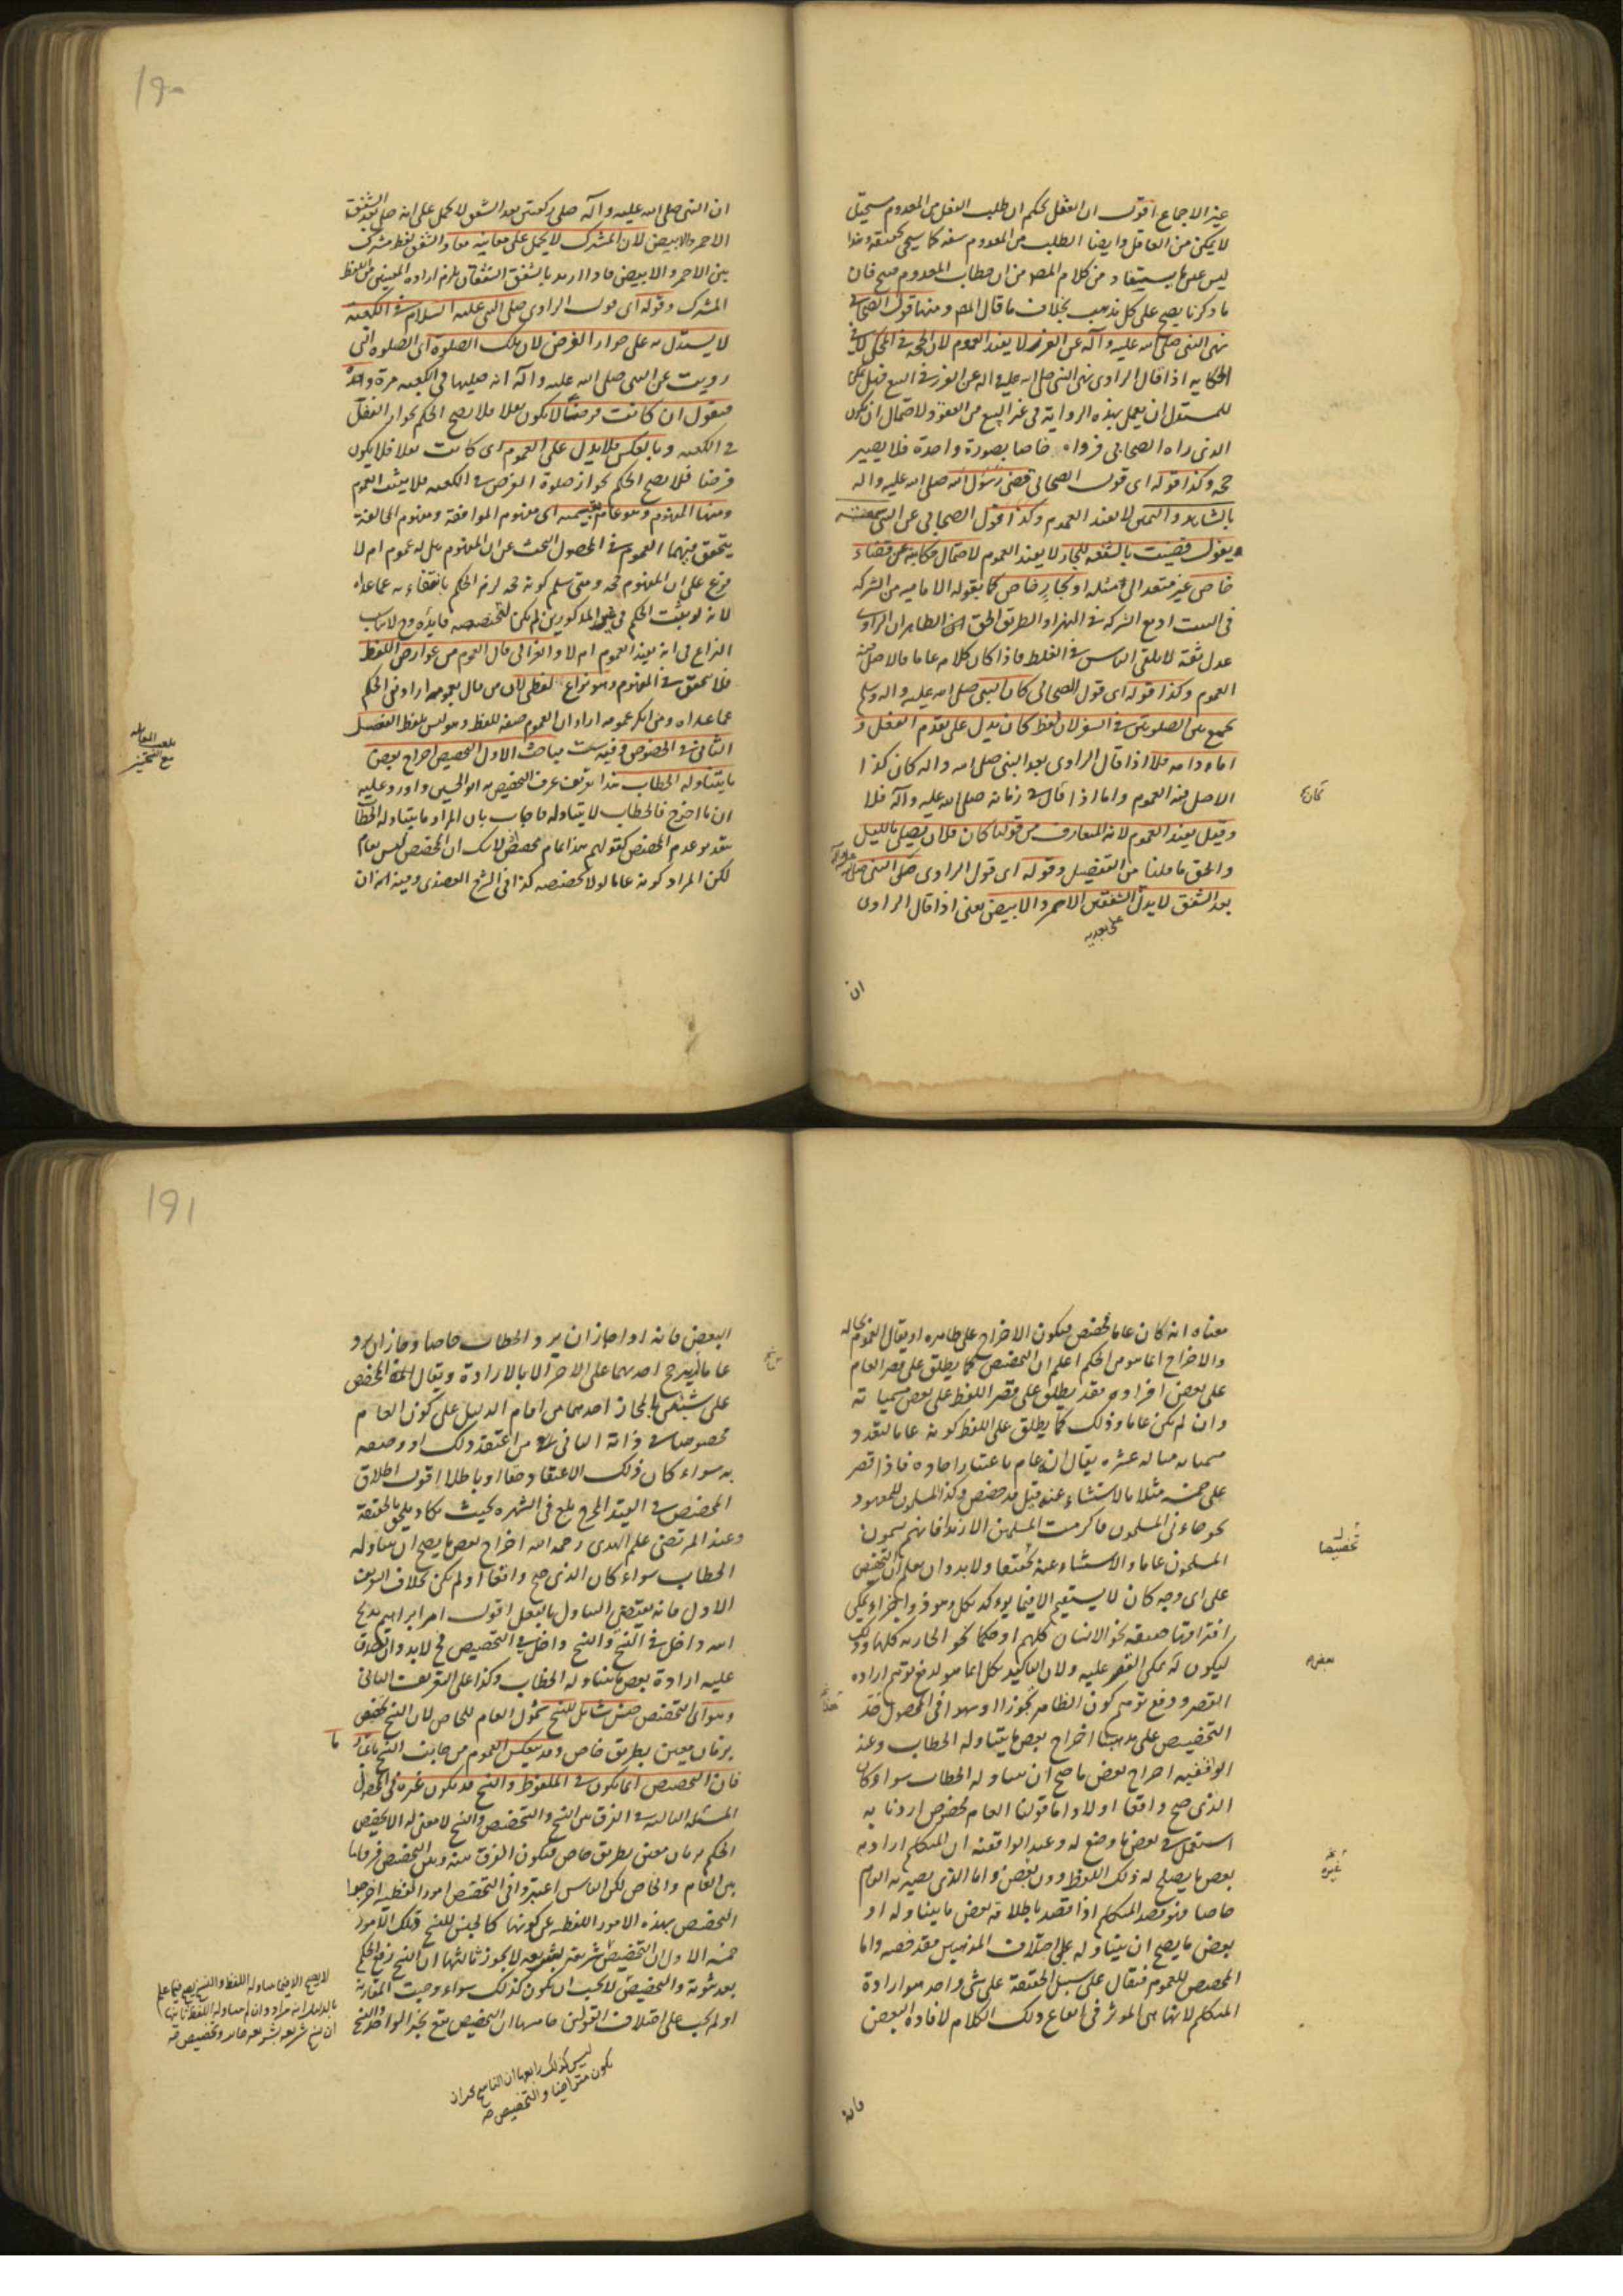 غير الاجماع اقول ان العقل يحكم ان طلب الفعل من المعدوم مستحيل
لا يمكن من العاقل وايضا الطلب من المعدوم سفه كما سيجي تحقيقه وهذا
ليس عين ما يستفاد من كلام المص من ان خطاب المعدوم قبيح فان
ما ذكرنا يصح على كل مذهب بخلاف ما قال المص ومنها قول الصحابي
نهى النبي صلى الله عليه وآله عن الغرر لا يفيد العموم لان الحجة في المحكي لا في
الحكاية اذا قال الراوي نهى النبي صلى الله عليه واله عن الغرر في البيع فهل يمكن
للمستدل ان يعمل بهذه الرواية في غير البيع من العقود لاحتمال ان يكون
الذي راه الصحابي فرواه خاصا بصورة واحدة فلا يصير
حجة وكذا قوله اي قول الصحابي قضى رسول الله صلى الله عليه واله
بالشاهد واليمين لا يفيد العموم وكذا قول الصحابي عن النبي سمعته
يقول قضيت بالشفعة للجار لا يفيد العموم لاحتمال حكايته عن قضاء
خاص غير متعد الى مثله او لجار خاص كما يقوله الامامية من الشركة
في البيت او مع الشركة في النهر او الطريق الحق ان الظاهر ان الراوي
عدل ثقة لا يلقى الناس في الغلط فاذا كان كلامه عاما فالاصل فيه
العموم وكذا قوله اي قول الصحابي كان النبي صلى الله عليه واله وسلم
يجمع بين الصلوتين في السفر لان لفظ كان يدل على تقدم الفعل و
اما دوامه فلا اذا قال الراوي بعد النبي صلى الله واله كان كذا
الاصل فيه العموم واما اذا قال في زمانه صلى الله عليه وآله فلا
وقيل يفيد العموم لانه المتعارف من قولنا كان فلان يصلي بالليل
والحق ما قلنا من التفصيل وقوله اي قول الراوي صلى النبي صلى
بعد الشفق لا يدل الشفقين الاحمر والابيض يعني اذا قال الراوي
على بعدية
ان
١٩٠
ان النبي صلى الله عليه وآله صلى ركعتين بعد الشفق لا يحمل على انه صلى بعد الشفق
الاحمر والابيض لان المشترك لا يحمل على معانيه معا والشفق لفظ مشترك
بين الاحمر والابيض فاذا اريد بالشفق الشفقان يلزم ارادة المعنيين من اللفظ
المشترك وقوله اي قول الراوي صلى النبي عليه السلام في الكعبة
لا يستدل به على جواز الفرض لان تلك الصلوة اي الصلوة التي
رويت عن النبي صلى الله عليه وآله انه صليها في الكعبة مرة واحدة
فنقول ان كانت فرضا لا يكون نفلا فلا يصح الحكم بجواز النفل
في الكعبة وبالعكس فلا يدل على العموم اي كانت نفلا فلا يكون
فرضا فلا يصح الحكم بجواز صلوة الفرض في الكعبة فلا يثبت العموم
ومنها المفهوم وهو عام بقسميه اي مفهوم الموافقة ومفهوم المخالفة
يتحقق فيهما العموم في المحصول البحث عن ان المفهوم هل له عموم ام لا
فرع على ان المفهوم حجة ومتى سلم كونه حجة لزم الحكم بانتفاءه عما عداه
لانه لو ثبت الحكم في غير المذكورين لم يكن لتخصيصه فايدة وح لا يناسب
النزاع في انه يفيد العموم ام لا والغزالي قال العموم من عوارض اللفظ
فلا يتحقق في المفهوم وهو نزاع لفظي لان من قال بعمومه اراد نفي الحكم
عما عداه ومن انكر عمومه اراد ان العموم صفة للفظ وهو ليس بلفظ الفصل
الثاني في الخصوص وفيه ست مباحث الاول التخصيص اخراج بعض
ما يتناوله الخطاب هذا تعريف عرف التخصيص به ابو الحسين واورد عليه
ان ما اخرج فالخطاب لا يتناوله فاجاب بان المراد ما يتناوله الخطاب
بتقدير عدم المخصص كقولهم هذا عام مخصص لا شك ان المخصص ليس بعام
لكن المراد كونه عاما لولا تخصيصه كذا في الشرح العضدي وفيه انه ان
معناه انه كان عاما فخصص فيكون الاخراج على ظاهره او يقال العموم بحاله
والاخراج انما هو من الحكم اعلم ان التخصيص كما يطلق على قصر العام
على بعض افراده فقد يطلق على قصر اللفظ على بعض مسمياته
وان لم يكن عاما وذلك كما يطلق على اللفظ كونه عاما لتعدد
مسمياته مثاله عشرة يقال انه عام باعتبار احاده فاذا قصر
على خمسة مثلا بالاستثناء عنه قيل قد خصص وكذا المسلمون للمعهود
نحو جاءني المسلمون فاكرمت المسلمين الا زيدا فانهم يسمون
المسلمون عاما والاستثناء عنه تخصيصا ولا بد وان يعلم ان التخصيص
على اي وجه كان لا يستقيم الا فيما يوكد بكل وهو ذو اجزاء يمكن
افتراقها حقيقة نحو الانسان كلهم او حكما نحو الجارية كلها وذلك
ليكون له يمكن القصر عليه ولان التاكيد بكل انما هو لدفع توهم ارادة
القصر ودفع توهم كون الظاهر تجوزا او سهوا في المحصول حد
التخصيص على مذهبنا اخراج بعض ما يتناوله الخطاب وعند
الواقفية اخراج بعض ما صح ان يتناوله الخطاب سواء كان
الذي صح واقعا اولا واما قولنا العام مخصوص اردنا به
استعمل في بعض ما وضع له وعند الواقفية ان المتكلم اراد به
بعض ما يصلح له ذلك اللفظ دون بعض واما الذي يصير به العام
خاصا فهو قصد المتكلم اذا قصد باطلاقه بعض ما يتناوله او
بعض ما يصح ان يتناوله على اختلاف المذهبين فقد خصه واما
المخصص للعموم فيقال على سبيل الحقيقة على شيء واحد هو ارادة
المتكلم لانها هي الموثر في ايقاع ذلك الكلام لافادة البعض
فانه
تخصيصا
بعض
غيره
١٩١
البعض فانه اذا جاز ان يرد الخطاب خاصا وجاز ان يرد
عاما لم يترجح احدهما على الاخر الا بالارادة ويقال المخصص
على شيئين بالمجاز احدهما من اقام الدليل على كون العام
مخصوصا في ذاته الثاني من اعتقد ذلك او وصفه
به سواء كان ذلك الاعتقاد حقا او باطلا اقول اطلاق
المخصص في القيد المخرج بلغ في الشهرة بحيث يكاد يلحق بالحقيقة
وعند المرتضى علم الهدى رحمه الله اخراج بعض ما يصح ان يتناوله
الخطاب سواء كان الذي صح واقعا او لم يكن بخلاف التعريف
الاول فانه يقتضي التناول بالفعل اقول امر ابراهيم بذبح
ابنه داخل في النسخ والنسخ داخل في التخصيص فح لا بد وان يصدق
عليه ارادة بعض ما يتناوله الخطاب وكذا على التعريف الثاني
وهو اي التخصيص جنس شامل للنسخ شمول العام للخاص لان النسخ تخصيص
بزمان معين بطريق خاص وقد ينعكس العموم من جانب النسخ باعتبار
فان التخصيص انما يكون في الملفوظ والنسخ قد يكون غيره في المحصول
المسئلة الثالثة في الفرق بين النسخ والتخصيص والنسخ لا معنى له الا تخصيص
الحكم بزمان معين بطريق خاص فيكون الفرق بينه وبين التخصيص فرق ما
بين العام والخاص لكن الناس اعتبروا في التخصيص امورا لفظية اخرجوا
التخصيص بهذه الامور اللفظية عن كونها كالجنس للنسخ وتلك الامور
خمسة الاول ان التخصيص شريعة بشريعة لا يجوز ثالثها ان النسخ رفع الحكم
بعد ثبوته والتخصيص لا يجب ان يكون كذلك سواء وجبت المقارنة
او لم يجب على اختلاف القولين خامسها ان التخصيص يقع بخبر الواحد والنسخ
ليس كذلك رابعها ان الناسخ يجب ان
يكون متراخيا والتخصيص صح
لا يصح الا فيما يتناوله اللفظ والنسخ يصح فيما علم
بالدليل انه مراد وان لم يتناوله اللفظ ثانيها
ان نسخ شريعة بشريعة جايز وتخصيص صح